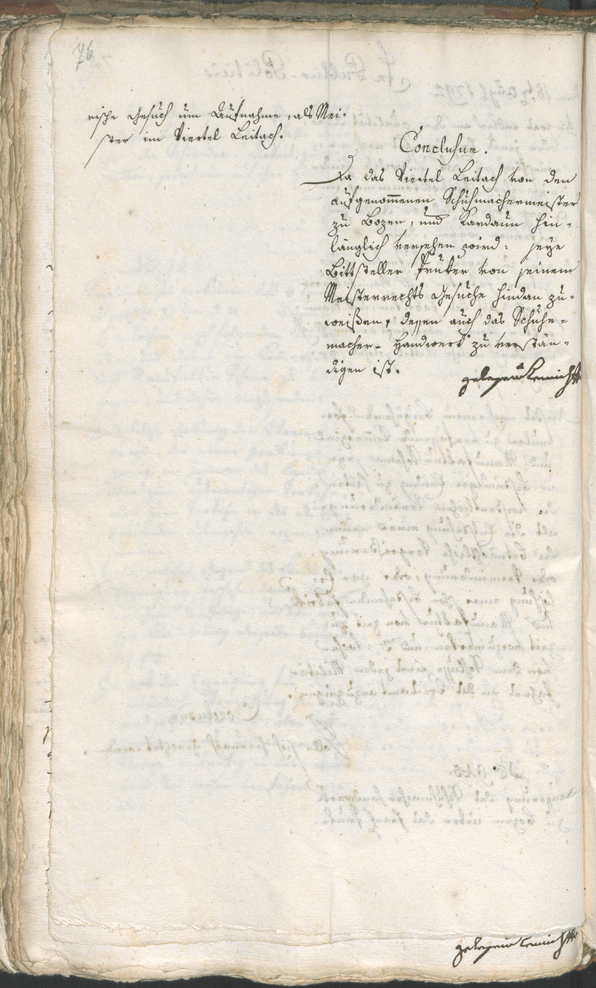 76
rische Gesuch um Aufnahme, als Mei-
ster im Viertel Leitach.
Conclusum.
Da das Viertel Leitach von den
aufgenommenen Schuhmachermeister
zu Bozen, und Kardaun hin-
länglich versehen wird: seye
Bittsteller von seinem
Meisterrechts Gesuche hindan zu-
weißen, dessen auch das Schuhe-
macher-Handwerk zu verstän-
digen ist.